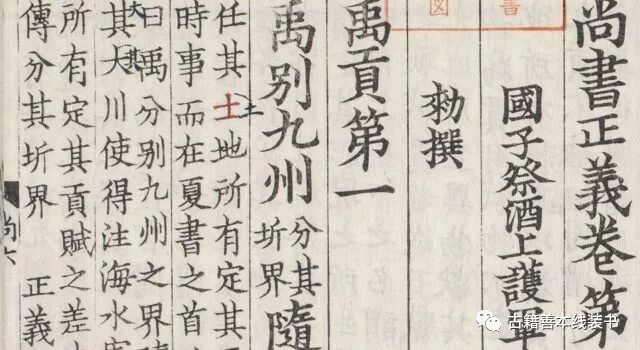 尚書正義卷第
國子祭酒上護軍
勑撰
禹貢第一
禹別九州 分其圻界 隨
任其土地所有定其
土
時事而在夏書之首
曰禹分別九州之界
其大川使得注海水
大其
所有定其貢賦之差
傳分其圻界 正義
尚六
書
図
古籍善本线装书